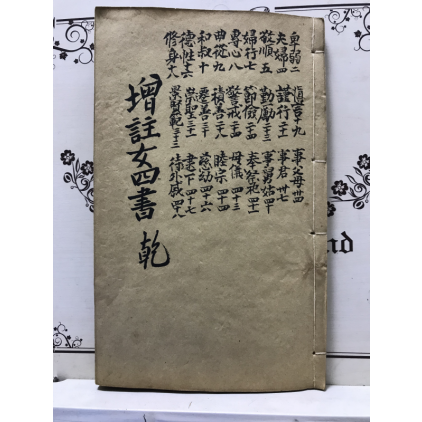 卑弱二
夫婦四
敬順五
婦行七
專心八
曲從九
和叔十
德性十六
修身十八
慎言十九
謹行二十一
勤勵二十三
節儉二十四
警戒二十四
積善二十八
遷善三十
崇聖三十一
景賢範三十三
事父母卅四
事君卅七
事舅姑四十
奉祭祀四十一
母儀四十三
睦宗四十四
慈幼四十六
逮下四十七
待外戚四十八
增註女四書 乾
nd